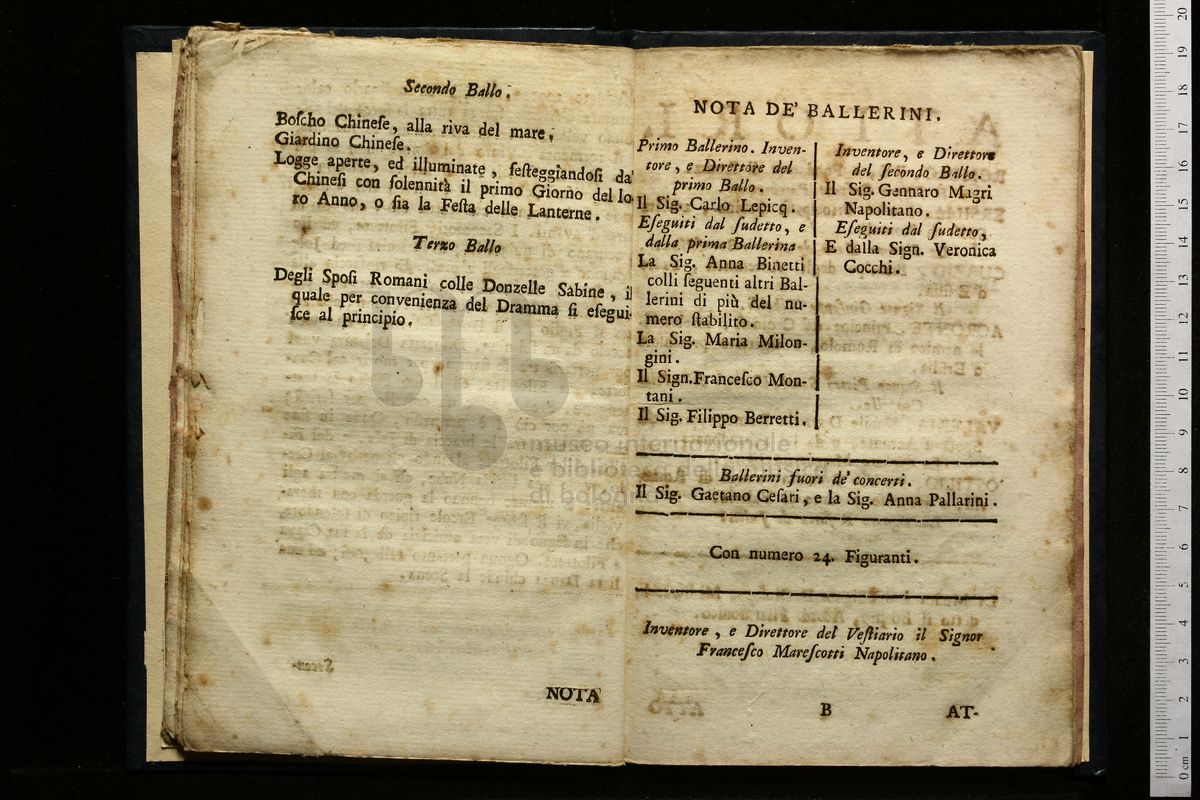 Secondo Ballo.
Boſcho Chineſe, alla riva del mare.
Giardino Chineſe.
Logge aperte, ed illuminate, feſteggiandoſi da'
Chineſi con ſolennità il primo Giorno del lo-
ro Anno, o ſia la Feſta delle Lanterne.
Terzo Ballo
Degli Spoſi Romani colle Donzelle Sabine, il
quale per convenienza del Dramma ſi eſegui-
ſce al principio.
NOTA
NOTA DE' BALLERINI.
Primo Ballerino. Inven-
tore, e Direttore del
primo Ballo.
Il Sig. Carlo Lepicq.
Eſeguiti dal ſudetto, e
dalla prima Ballerina
La Sig. Anna Binetti
colli ſeguenti altri Bal-
lerini di più del nu-
mero ſtabilito.
La Sig. Maria Milon-
gini.
Il Sign.Franceſco Mon-
tani.
Il Sig. Filippo Berretti.
Inventore, e Direttore
del ſecondo Ballo.
Il Sig. Gennaro Magri
Napolitano.
Eſeguiti dal ſudetto,
E dalla Sign. Veronica
Cocchi.
Ballerini fuori de' concerti.
Il Sig. Gaetano Ceſari, e la Sig. Anna Pallarini.
Con numero 24. Figuranti.
Inventore, e Direttore del Veſtiario il Signor
Franceſco Mareſcotti Napolitano.
B
AT-
museo internazionale
e biblioteca della
di bologna